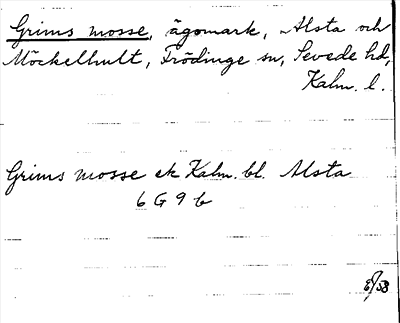 Grims mosse, ägomark, Alsta och
Möckelhult, Frödinge sn, Sevede hd,
Kalm. l.
Grims mosse ek Kalm. bl. Alsta
6 G 9 b